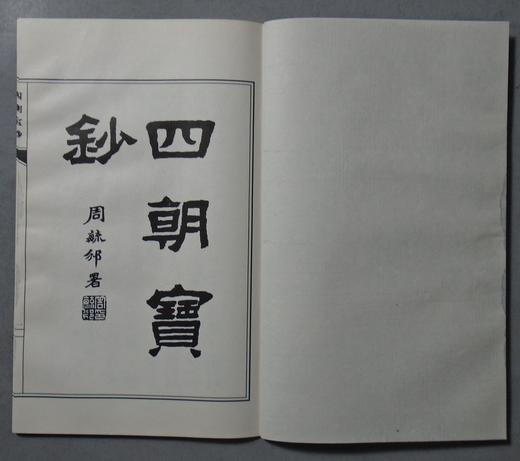 四朝寶
鈔
周穌邠署